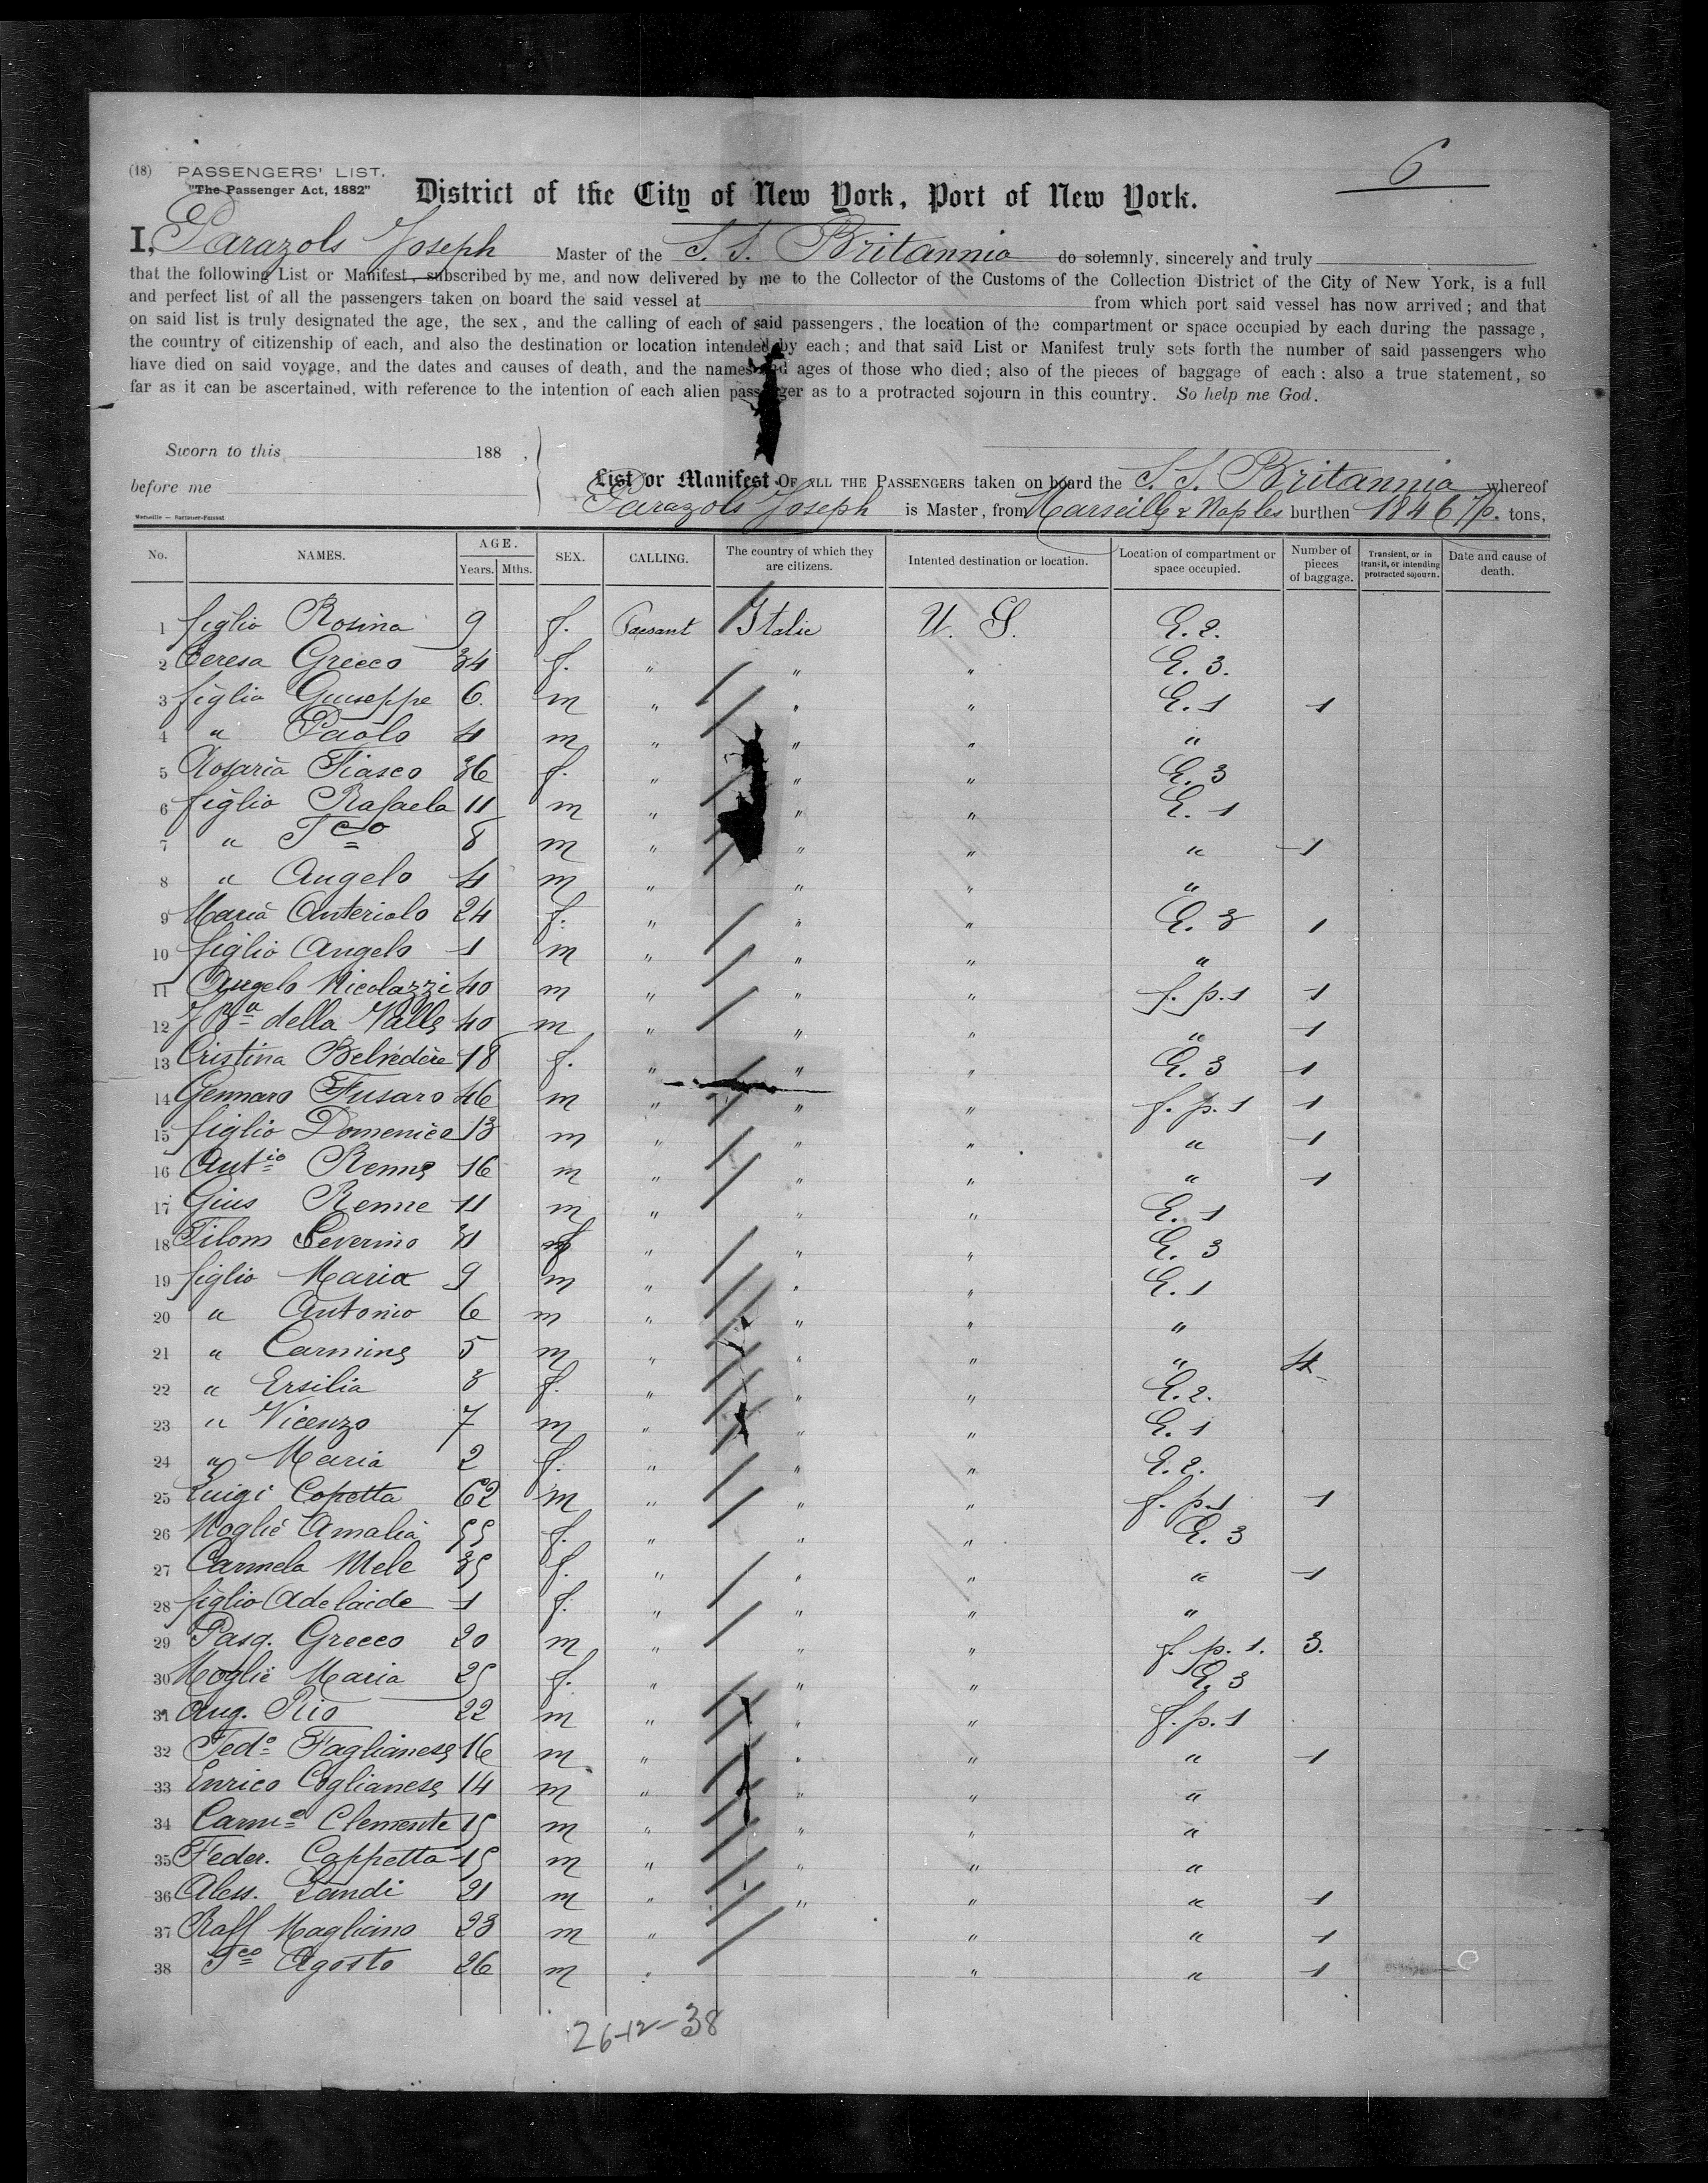 (18) PASSENGERS' LIST. 6
"The Passenger Act, 1882" District of the City of New York, Port of New York.
I, Parazols Joseph Master of the S. S. Britannia do solemnly, sincerely and truly
that the following List or Manifest, subscribed by me, and now delivered by me to the Collector of the Customs of the Collection District of the City of New York, is a full
and perfect list of all the passengers taken on board the said vessel at from which port said vessel has now arrived; and that
on said list is truly designated the age, the sex, and the calling of each of said passengers, the location of the compartment or space occupied by each during the passage,
the country of citizenship of each, and also the destination or location intended by each; and that said List or Manifest truly sets forth the number of said passengers who
have died on said voyage, and the dates and causes of death, and the names and ages of those who died; also of the pieces of baggage of each: also a true statement, so
far as it can be ascertained, with reference to the intention of each alien passenger as to a protracted sojourn in this country. So help me God.
Sworn to this 188 ,
before me
List or Manifest OF ALL THE PASSENGERS taken on board the S. S. Britannia whereof
Parazols Joseph is Master, from Marseille & Naples burthen 1846 tons,
No. NAMES. AGE. Years. Mths. SEX. CALLING. The country of which they are citizens. Intented destination or location. Location of compartment or space occupied. Number of pieces of baggage. Transient, or in transit, or intending protracted sojourn. Date and cause of death.
1 figlia Rosina 9 f. Paesant Italie U. S. E. 2.
2 Teresa Grecco 34 f. " " " E. 3.
3 figlio Guiseppe 6. m " " " E. 1 1
4 " Paolo 4 m " " " "
5 Rosaria Fiasco 36 f. " " " E. 3
6 figlio Rafaela 11 m " " " E. 1
7 " Fco 8 m " " " " 1
8 " Angelo 4 m " " " "
9 Maria Anteriolo 24 f. " " " E. 3 1
10 figlio Angelo 1 m " " " "
11 Angelo Nicolazzi 40 m " " " f. p. 1 1
12 della Valle 40 m " " " " 1
13 Cristina Belvédère 18 f. " " " E. 3 1
14 Gennaro Fusaro 46 m " " " f. p. 1 1
15 figlio Domenico 13 m " " " " 1
16 Antio Renne 16 m " " " " 1
17 Gius Renne 11 m " " " E. 1
18 Filom Severino 31 f " " " E. 3
19 figlio Maria 9 m " " " E. 1
20 " Antonio 6 m " " " "
21 " Carmine 5 m " " " " 4
22 " Ersilia 3 f. " " " E. 2.
23 " Vicenzo 7 m " " " E. 1
24 " Maria 2 f. " " " E. 2.
25 Luigi Copetta 62 m " " " f. p. 1 1
26 Moglie Amalia 55 f. " " " E. 3
27 Carmela Mele 35 f. " " " " 1
28 figlio Adelaide 1 f. " " " "
29 Pasq. Grecco 20 m " " " f. p. 1. 3.
30 Moglie Maria 25 f. " " " E. 3
31 Ang. Rio 22 m " " " f. p. 1
32 Fedo Faglianese 16 m " " " " 1
33 Enrico Coglianese 14 m " " " "
34 Carmo Clemente 15 m " " " "
35 Feder. Cappetta 15 m " " " "
36 Aless. Landi 21 m " " " " 1
37 Raff Magliano 23 m " " " 1
38 Fco Agosto 26 m " " " 1
26-12-38